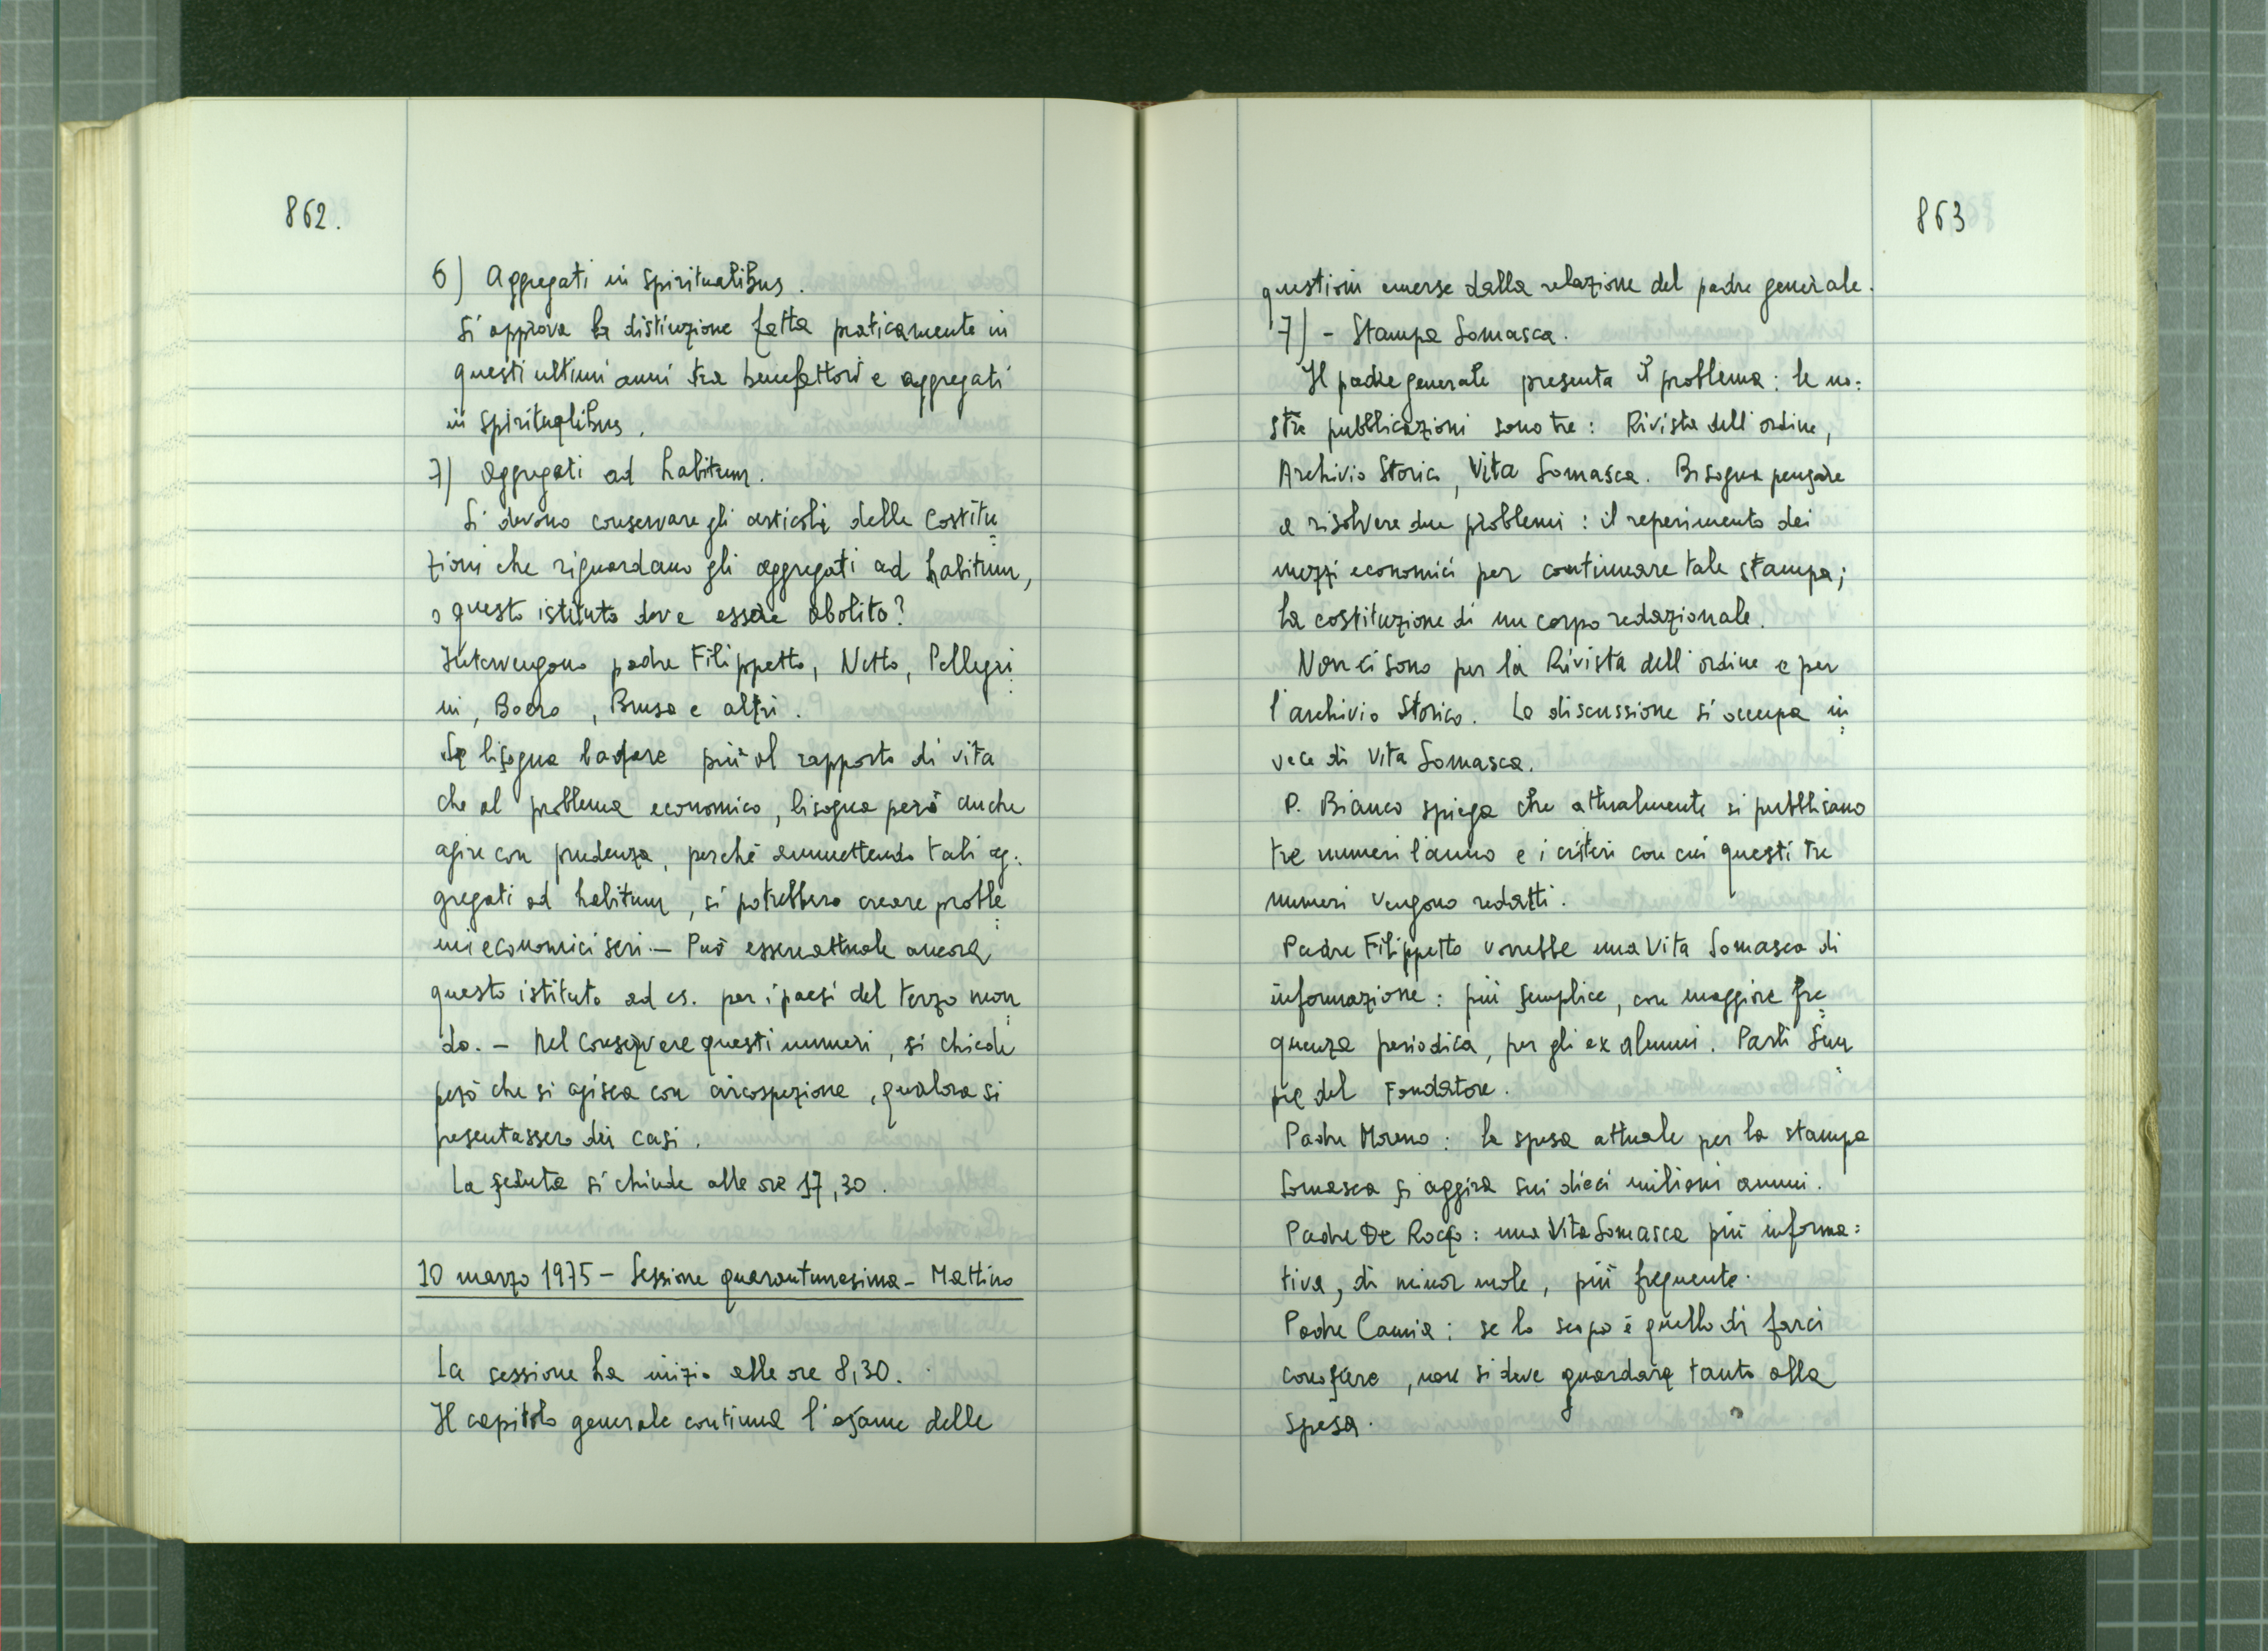 862.
6) Aggregati in spiritualibus.
Si approva la distinzione fatta praticamente in
questi ultimi anni tra benefattori e aggregati
in spiritualibus.
7) Aggregati ad habitum.
Si devono conservare gli articoli delle Costitu=
zioni che riguardano gli aggregati ad habitum,
o questo istituto deve essere abolito?
Intervengono padre Filippetto, Netto, Pellegri=
ni, Boero, Brusa e altri.
Se bisogna badare più al rapporto di vita
che al problema economico, bisogna però anche
agire con prudenza, perché ammettendo tali ag=
gregati ad habitum, si potrebbero creare proble=
mi economici seri. - Può essere attuale ancora
questo istituto ad es. per i paesi del terzo mon=
do. - Nel conservare questi numeri, si chiede
però che si agisca con circospezione, qualora si
presentassero dei casi.
La seduta si chiude alle ore 17,30.
10 marzo 1975 - Sessione quarantunesima - Mattino
La sessione ha inizio alle ore 8,30.
Il capitolo generale continua l'esame delle
863
questioni emerse dalla relazione del padre generale.
7) - Stampa Somasca.
Il padre generale presenta il problema: le no=
stre pubblicazioni sono tre: Rivista dell'ordine,
Archivio Storico, Vita Somasca. Bisogna pensare
a risolvere due problemi: il reperimento dei
mezzi economici per continuare tale stampa;
la costituzione di un corpo redazionale.
Non ci sono per la Rivista dell'ordine e per
l'archivio Storico. La discussione si occupa in=
vece di Vita Somasca.
P. Bianco spiega che attualmente si pubblicano
tre numeri l'anno e i criteri con cui questi tre
numeri vengono redatti.
Padre Filippetto vorrebbe una Vita Somasca di
informazione: più semplice, con maggiore fre=
quenza periodica, per gli ex alunni. Parli sem=
pre del Fondatore.
Padre Moreno: la spesa attuale per la stampa
Somasca si aggira sui dieci milioni annui.
Padre De Rocco: una Vita Somasca più informa=
tiva, di minor mole, più frequente.
Padre Camia: se lo scopo è quello di farci
conoscere, non si deve guardare tanto alla
spesa.